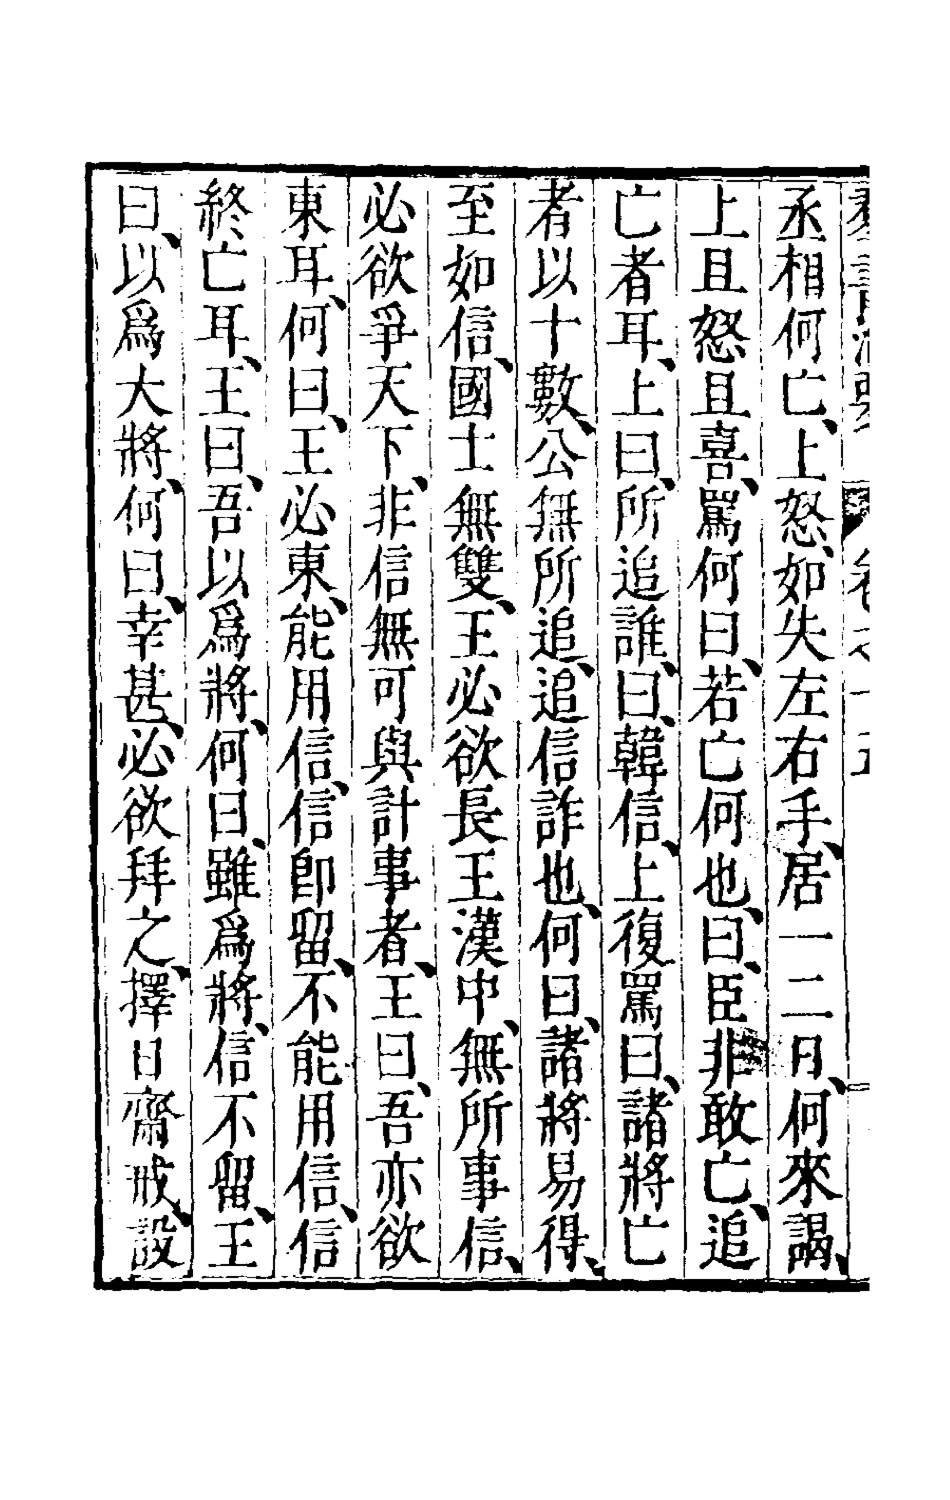 丞相何亡、上怒、如失左右手、居一二日、何來謁、
上且怒且喜、罵何曰、若亡何也、曰、臣非敢亡、追
亡者耳、上曰、所追誰、曰、韓信、上復罵曰、諸將亡
者以十數、公無所追、追信詐也、何曰、諸將易得、
至如信、國士無雙、王必欲長王漢中、無所事信、
必欲爭天下、非信無可與計事者、王曰、吾亦欲
東耳、何曰、王必東、能用信、信卽留、不能用信、信
終亡耳、王曰、吾以爲將、何曰、雖爲將、信不留、王
曰、以爲大將、何曰、幸甚、必欲拜之、擇日齋戒、設